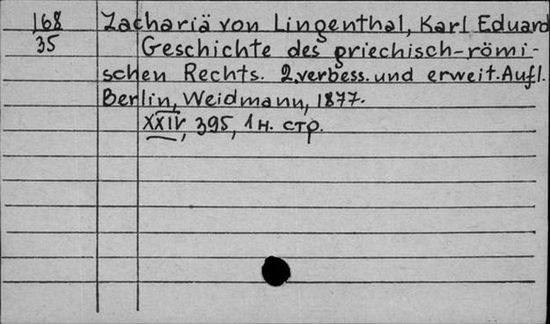 168 Zachariä von Lingenthal, Karl Eduard
35 Geschichte des griechisch-römi-
schen Rechts. 2. verbess. und erweit. Aufl.
Berlin, Weidmann, 1877.
XXIV, 395, 1 н. стр.